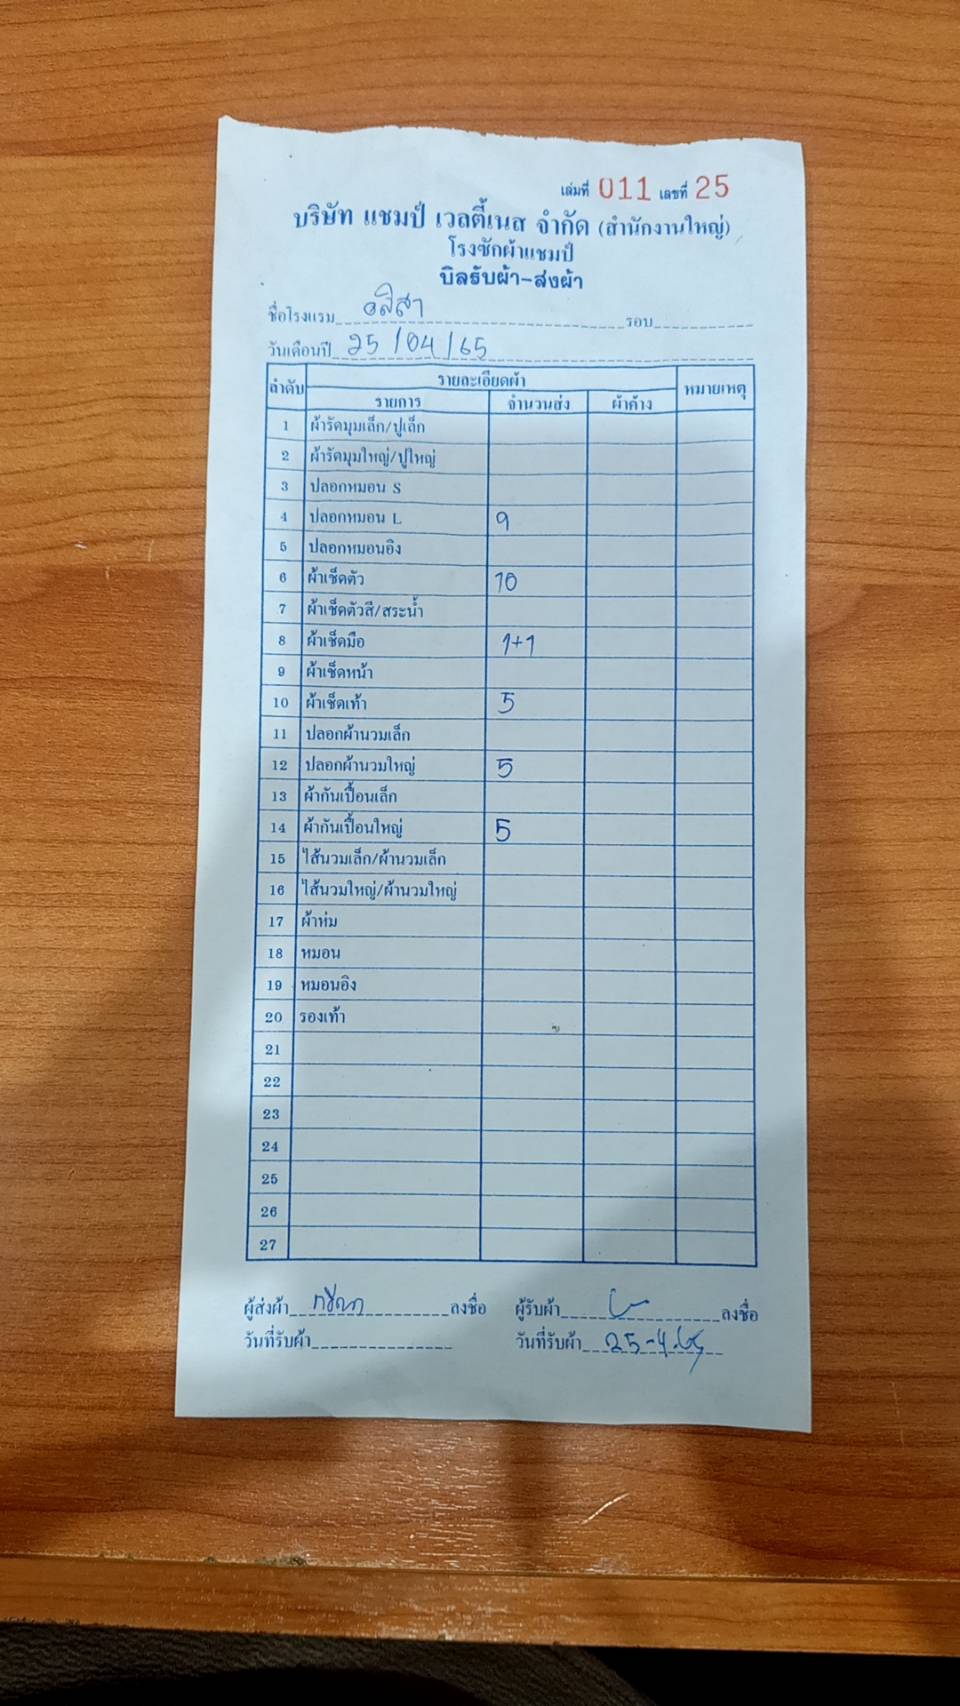 เล่มที่ 011 เลขที่ 25
บริษัท แชมป์ เวลตี้เนส จำกัด (สำนักงานใหญ่)
โรงซักผ้าแชมป์
บิลรับผ้า-ส่งผ้า
ชื่อโรงแรม อลิสา รอบ
วันเดือนปี 25/04/65
ลำดับ รายละเอียดผ้า หมายเหตุ
รายการ จำนวนส่ง ผ้าค้าง
1 ผ้ารัดมุมเล็ก/ปูเล็ก
2 ผ้ารัดมุมใหญ่/ปูใหญ่
3 ปลอกหมอน S
4 ปลอกหมอน L 9
5 ปลอกหมอนอิง
6 ผ้าเช็ดตัว 10
7 ผ้าเช็ดตัวสี/สระน้ำ
8 ผ้าเช็ดมือ 1+1
9 ผ้าเช็ดหน้า
10 ผ้าเช็ดเท้า 5
11 ปลอกผ้านวมเล็ก
12 ปลอกผ้านวมใหญ่ 5
13 ผ้ากันเปื้อนเล็ก
14 ผ้ากันเปื้อนใหญ่ 5
15 ไส้นวมเล็ก/ผ้านวมเล็ก
16 ไส้นวมใหญ่/ผ้านวมใหญ่
17 ผ้าห่ม
18 หมอน
19 หมอนอิง
20 รองเท้า
21
22
23
24
25
26
27
ผู้ส่งผ้า ลงชื่อ ผู้รับผ้า ลงชื่อ
วันที่รับผ้า วันที่รับผ้า 25-4-65